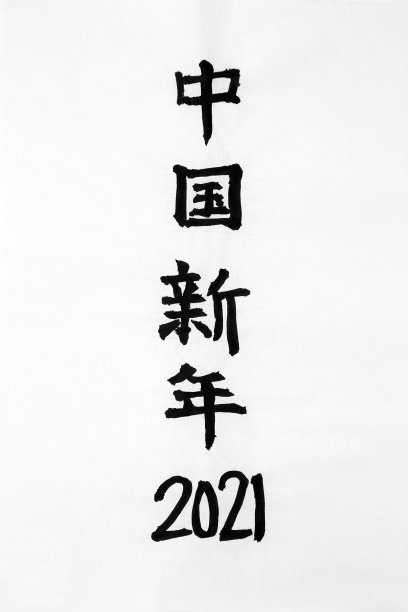 中国新年
2021